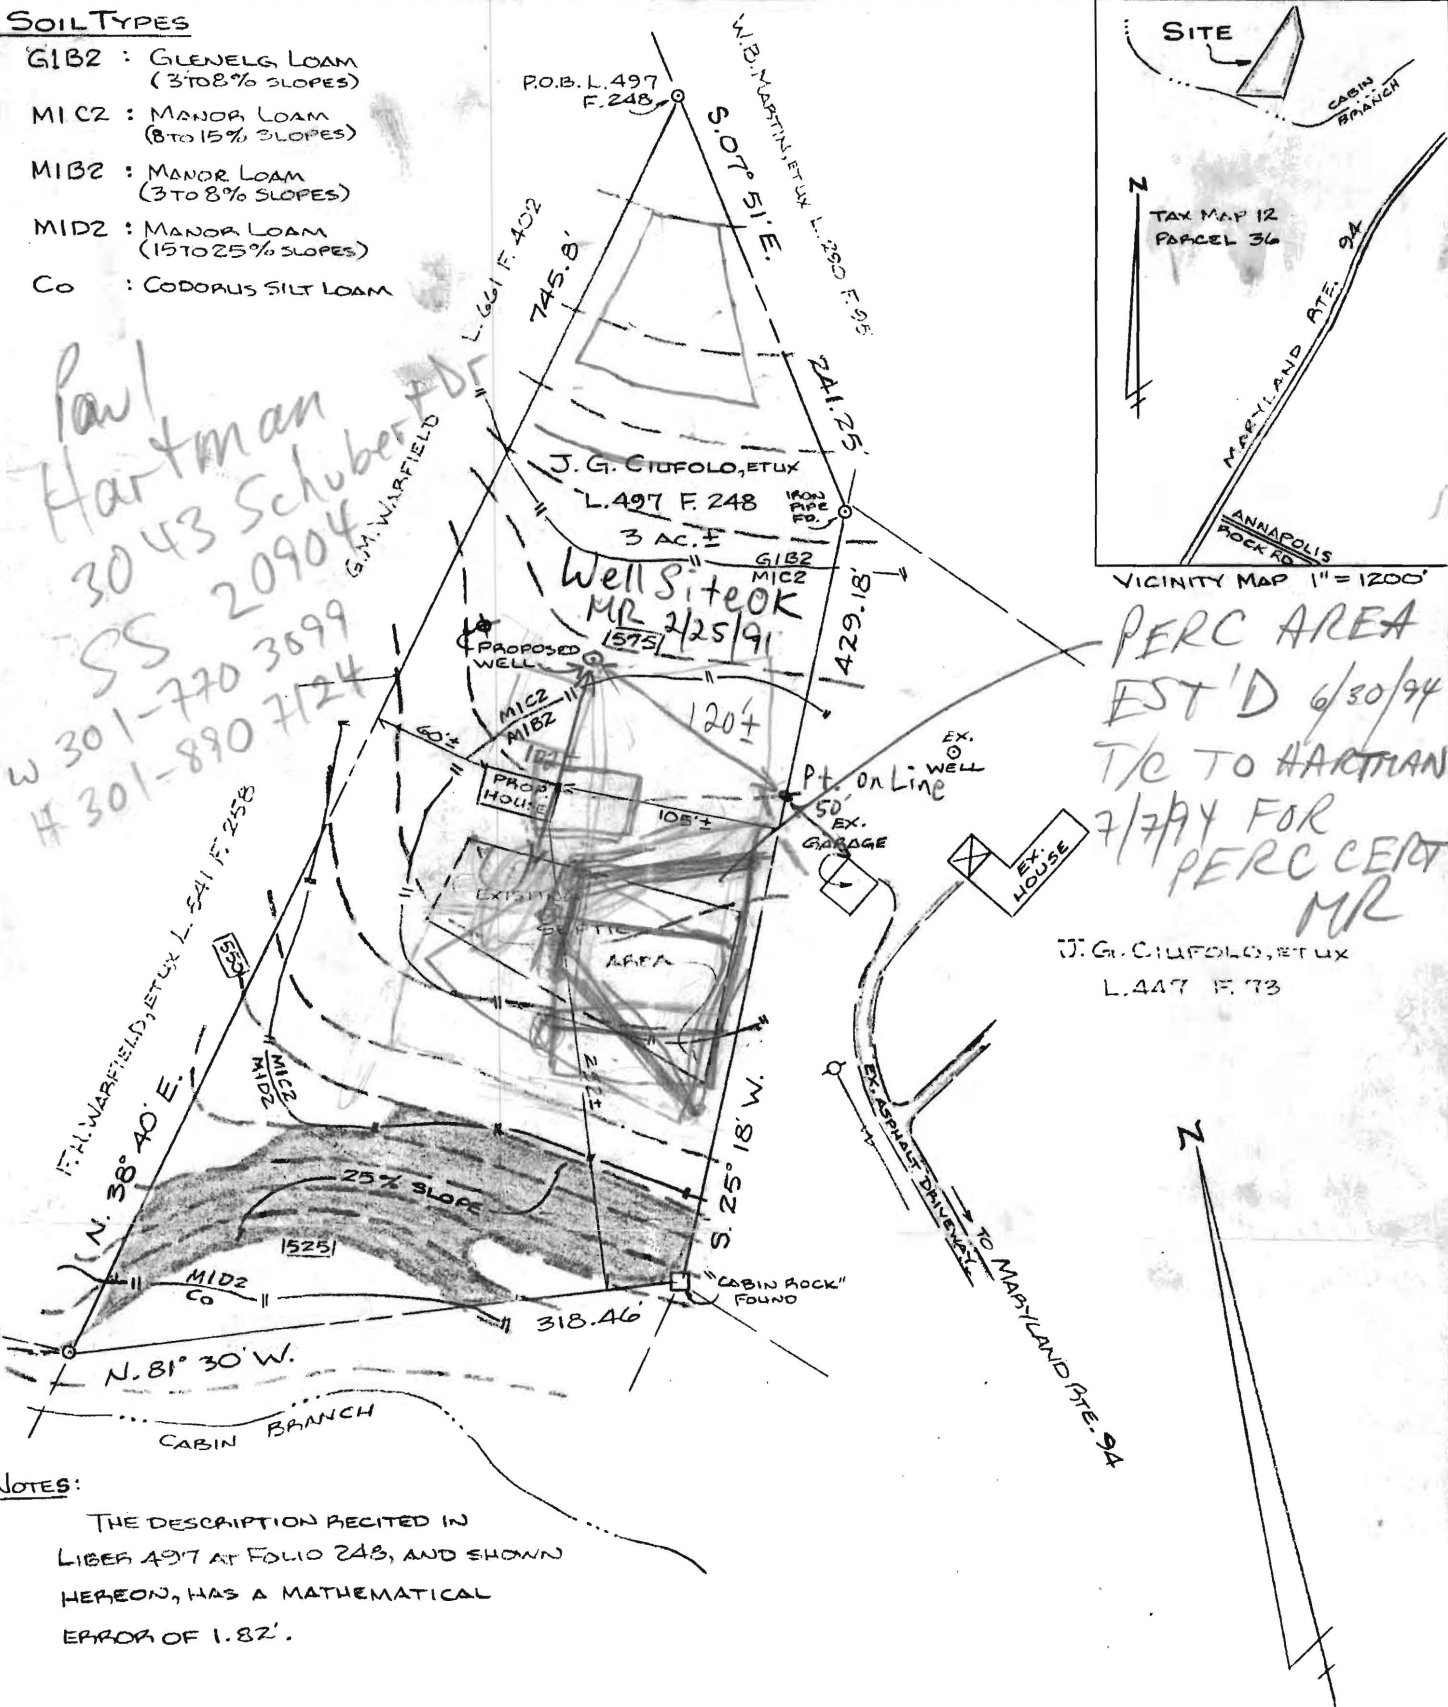 SOIL TYPES
G1B2 : GLENELG LOAM
(3 TO 8% SLOPES)
M1C2 : MANOR LOAM
(8 TO 15% SLOPES)
M1B2 : MANOR LOAM
(3 TO 8% SLOPES)
M1D2 : MANOR LOAM
(15 TO 25% SLOPES)
Co : CODORUS SILT LOAM
Paul
Hartman
3043 Schubert Dr
SS 20904
W 301-770 3099
H 301-890 7124
P.O.B. L. 497
F. 248
W.B. MARTIN, ET UX L. 290 F. 95
S. 07° 51' E.
241.25'
L. 661 F. 402
745.8'
G.M. WARFIELD
J. G. CIUFOLO, ET UX
L. 497 F. 248
3 AC. ±
IRON
PIPE
FD.
G1B2
M1C2
Well Site OK
MR 2/25/91
1575
PROPOSED
WELL
429.18'
M1C2
M1B2
60'±
120'±
102±
PROP.
HOUSE
105'±
Pt. on Line
50'
EX.
WELL
EX.
GARAGE
EX.
HOUSE
EXISTING
SEPTIC
AREA
F.H. WARFIELD, ET UX L. 541 F. 258
550
M1C2
M1D2
N. 38° 40' E.
25% SLOPE
1525
M1D2
Co
S. 25° 18' W.
"CABIN ROCK"
FOUND
318.46'
N. 81° 30' W.
CABIN BRANCH
EX. ASPHALT DRIVEWAY
TO MARYLAND RTE. 94
J. G. CIUFOLO, ET UX
L. 447 F. 73
SITE
CABIN
BRANCH
N
TAX MAP 12
PARCEL 36
MARYLAND RTE. 94
ANNAPOLIS
ROCK RD
VICINITY MAP 1" = 1200'
PERC AREA
EST'D 6/30/94
T/C TO HARTMAN
7/7/94 FOR
PERC CERT
MR
N
NOTES:
THE DESCRIPTION RECITED IN
LIBER 497 AT FOLIO 248, AND SHOWN
HEREON, HAS A MATHEMATICAL
ERROR OF 1.82'.